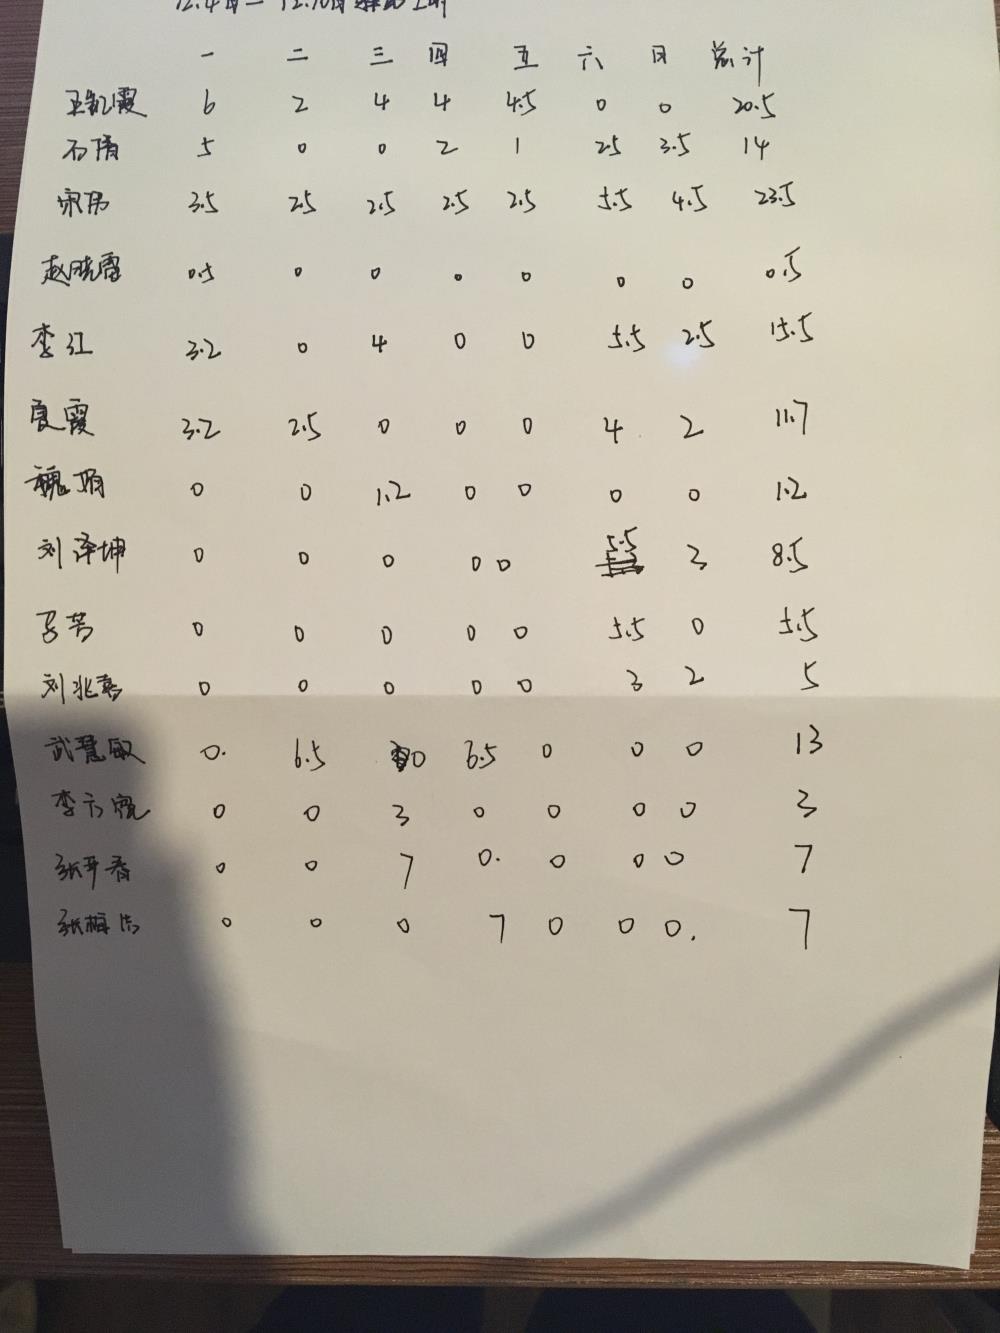 一 二 三 四 五 六 日 总计
王凯霞 6 2 4 4 4.5 0 0 20.5
石倩 5 0 0 2 1 2.5 3.5 14
宋伟 3.5 2.5 2.5 2.5 2.5 5.5 4.5 23.5
赵晓雷 0.5 0 0 0 0 0 0 0.5
李江 3.2 0 4 0 0 5.5 2.5 15.5
良霞 3.2 2.5 0 0 0 4 2 11.7
魏 0 0 1.2 0 0 0 0 1.2
刘泽坤 0 0 0 0 0 5.5 3 8.5
芳 0 0 0 0 0 5.5 0 5.5
刘兆 0 0 0 0 0 3 2 5
武慧敏 0. 6.5 0 6.5 0 0 0 13
李 0 0 3 0 0 0 0 3
张 0 0 7 0. 0 0 0 7
张梅 0 0 0 7 0 0 0. 7